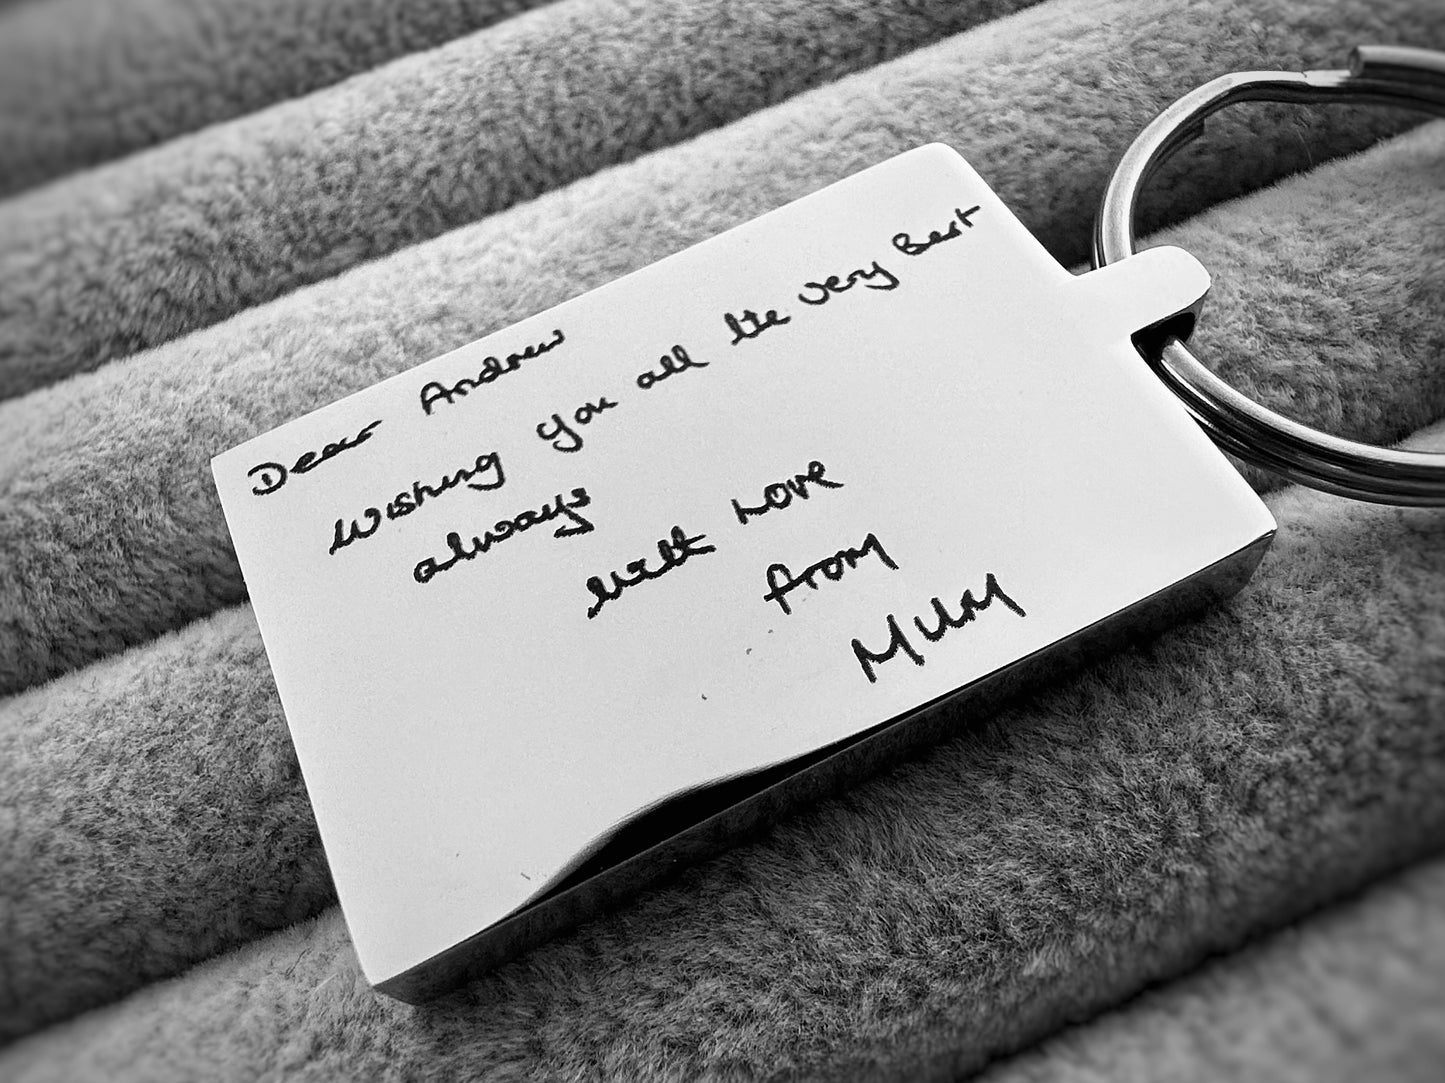 Dear Andrew
Wishing you all the very Best
always
with Love
from
Mum